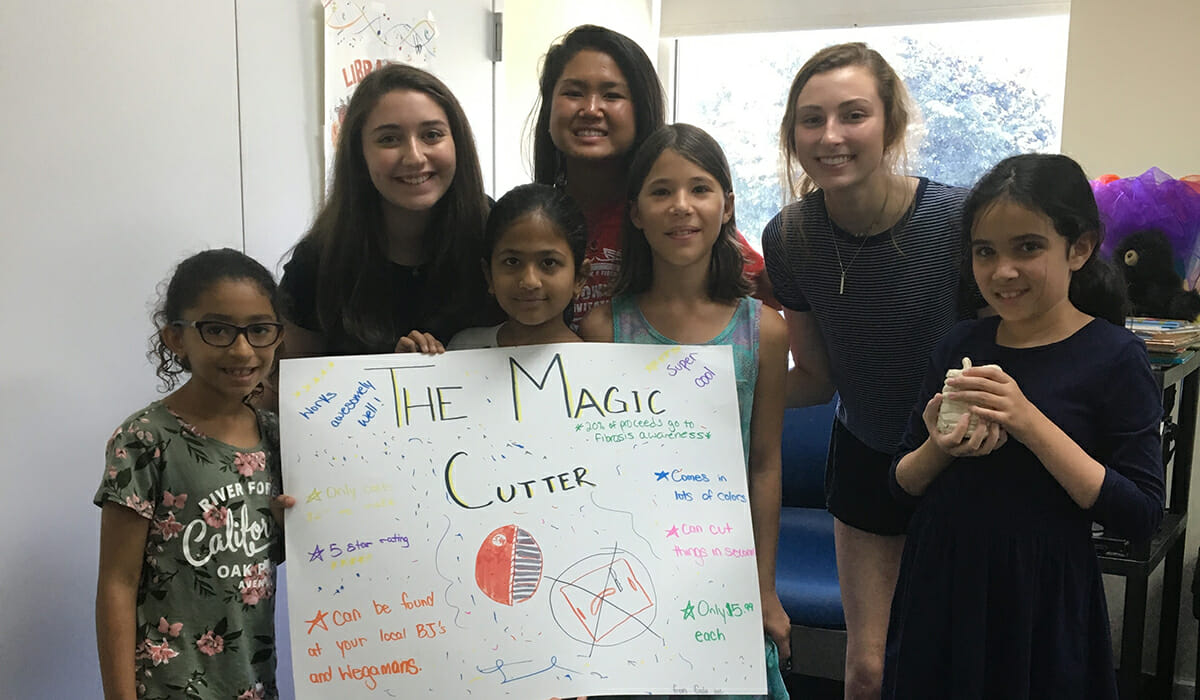 LIBRA
Works
awesomely
well!
THE MAGIC
CUTTER
Super
cool
*20% of proceeds go to
Fibrosis awareness*
Only
5 star rating
Can be found
at your local BJ's
and Wegamans.
Comes in
lots of colors
Can cut
things in
Only $5.99
each
RIVER
California
OAK
AVEN